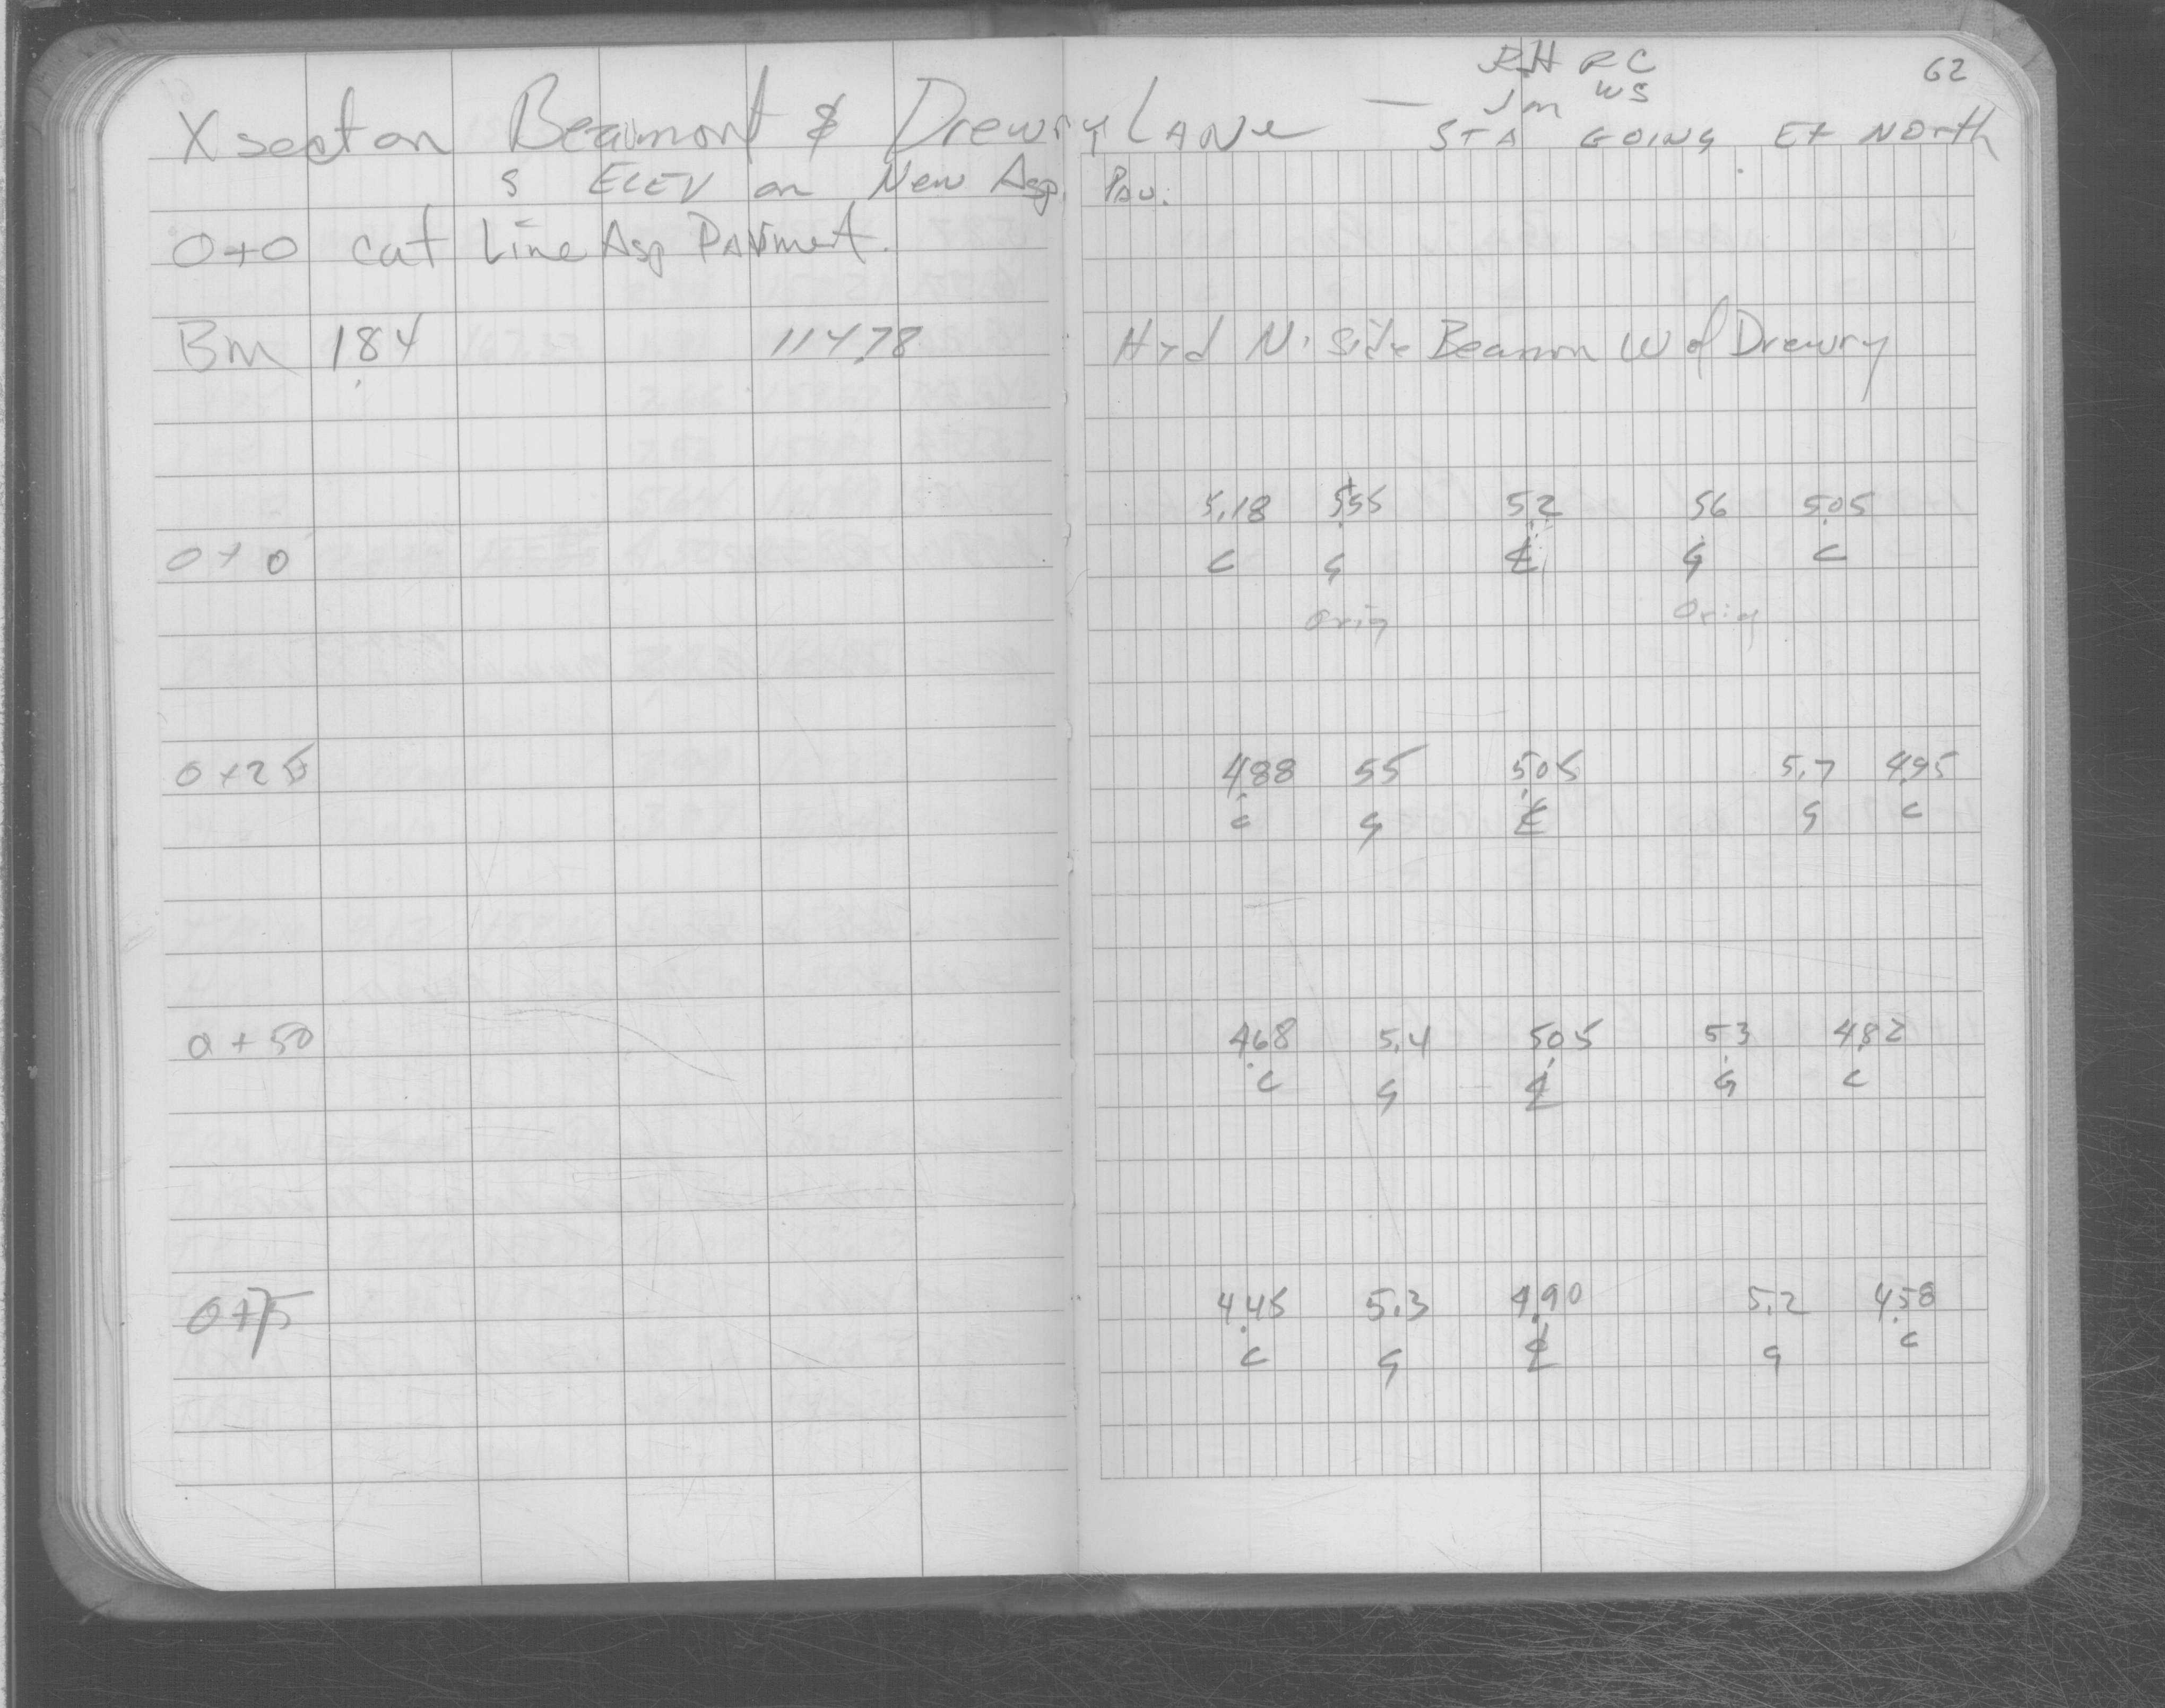 RH RC 62
Jm WS
X sect on Beaumont & Drewry Lane — STA GOING E+ North
s ELEV on New Asp. Pav.
0+0 cut Line Asp Pavment.
Bm 1.84 114.78 Hyd N. Side Beamon W of Drewry
5.18 5.55 5.2 5.6 5.05
0+0 C G ℄ G C
Orig Orig
0+25 4.88 5.5 5.05 5.7 4.95
C G ℄ G C
0+50 4.68 5.4 5.05 5.3 4.82
C G ℄ G C
0+75 4.45 5.3 4.90 5.2 4.58
C G ℄ G C